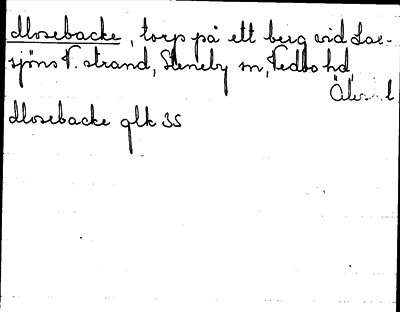 Mosebacke, torp på ett berg vid Lax-
sjöns V. strand, Steneby sn, Vedbo hd,
Älvs l
Mosebacke glk 35